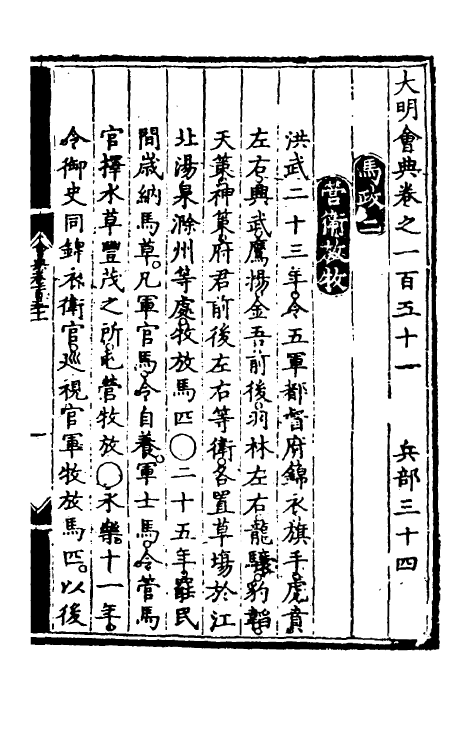 大明會典卷之一百五十一　兵部三十四
馬政二
營衛放牧
洪武二十三年令五軍都督府錦衣旗手虎賁
左右興武鷹揚金吾前後羽林左右龍驤豹韜
天策神策府君前後左右等衛各置草場於江
北湯泉滁州等處牧放馬匹○二十五年罷民
間歲納馬草凡軍官馬令自養軍士馬令管馬
官擇水草豐茂之所屯營牧放○永樂十一年
令御史同錦衣衛官巡視官軍牧放馬匹以後
一